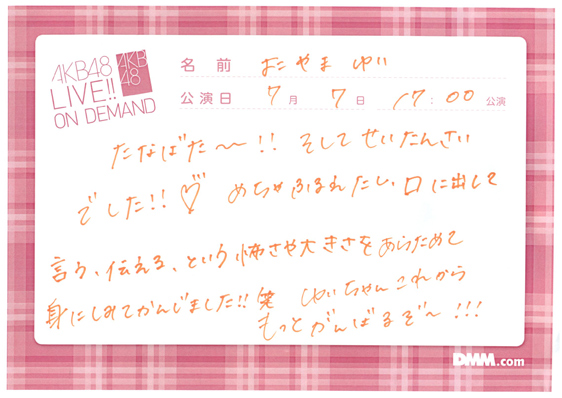 AKB48
LIVE!!
ON DEMAND
AKB
48
名 前 よこやま ゆい
公演日 7月 7日 17:00 公演
たなばた〜!! そしてせいたんさい
でした!!♡ めちゃふるえたし、口に出して
言う、伝える、という怖さや大きさをあらためて
身にしみてかんじました!!笑 ゆいちゃんこれから
もっとがんばるぞ〜!!!
DMM.com